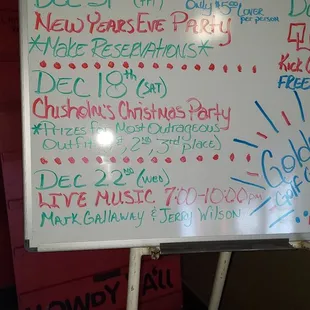 DEC 31 (FRI) Only $5.00 cover
NEW YEARS EVE PARTY per person
*MAKE RESERVATIONS*
DEC 18th (SAT)
CHISHOLM'S CHRISTMAS PARTY
*PRIZES FOR MOST OUTRAGEOUS
OUTFIT (1st, 2nd, 3rd PLACE)
DEC 22nd (WED)
LIVE MUSIC 7:00-10:00PM
MARK GALLAWAY & JERRY WILSON
KICK
FREE
HOWDY Y'ALL